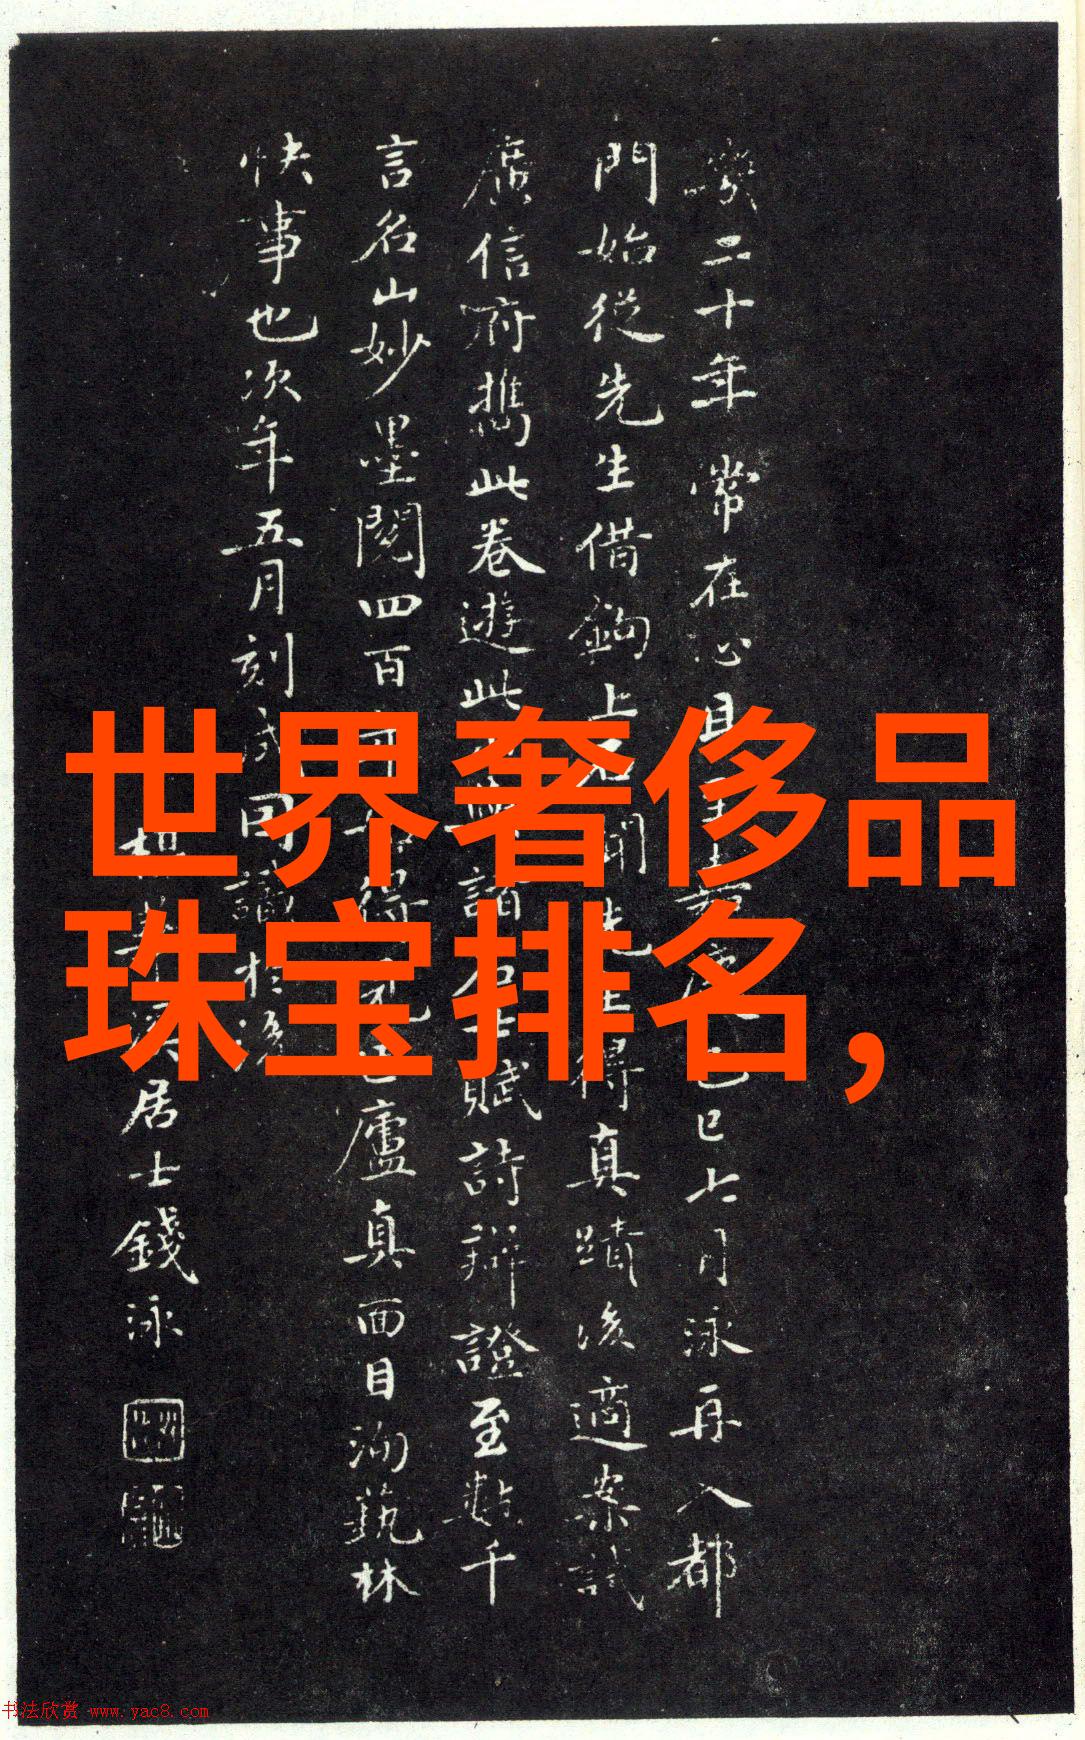 二十年常在心且
巳七月泳再入都
門始從先生借鉤上石
得真蹟後適案試
廣信府攜此卷遊此
賦詩辯證至數千
言名山妙墨閱四百
廬真面目洵藝林
快事也次年五月刻成因識於後
居士錢泳
世界奢侈品
珠宝排名，
书法欣赏 www.yac8.com